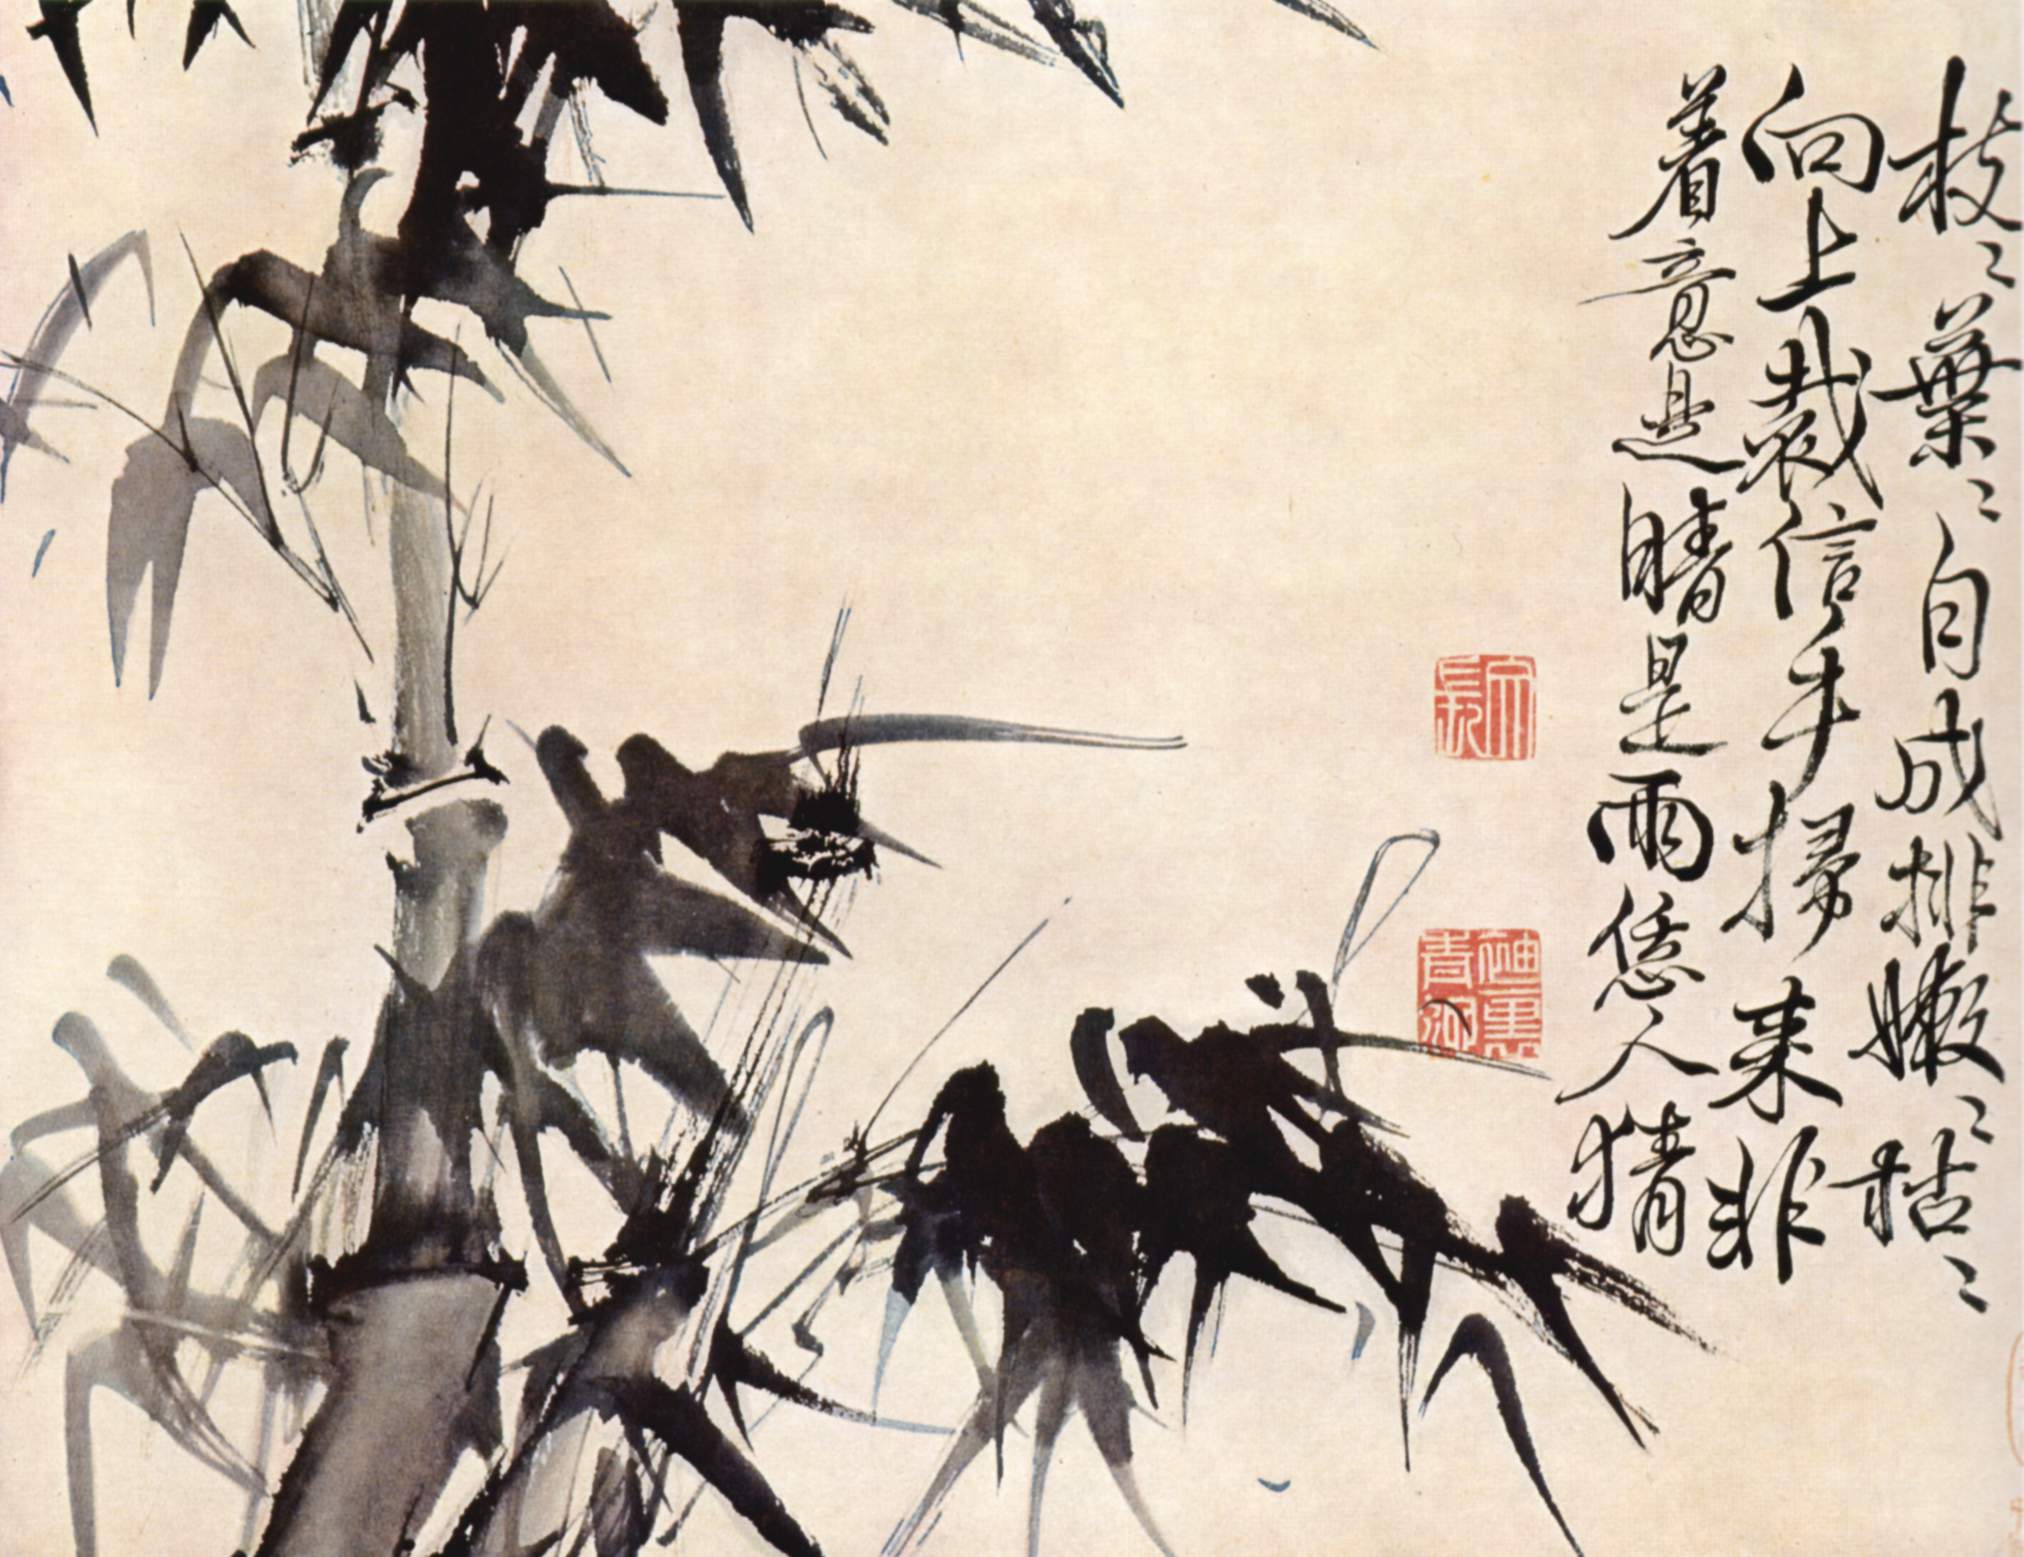 枝〻葉〻自成排嫩〻枯〻
向上裁信手掃來非
着意是晴是雨恁人猜
文長